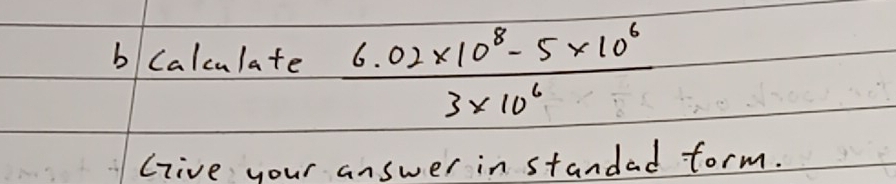 b Calculate 6.02×10⁸ - 5×10⁶
3×10⁶
Give your answer in standad form.